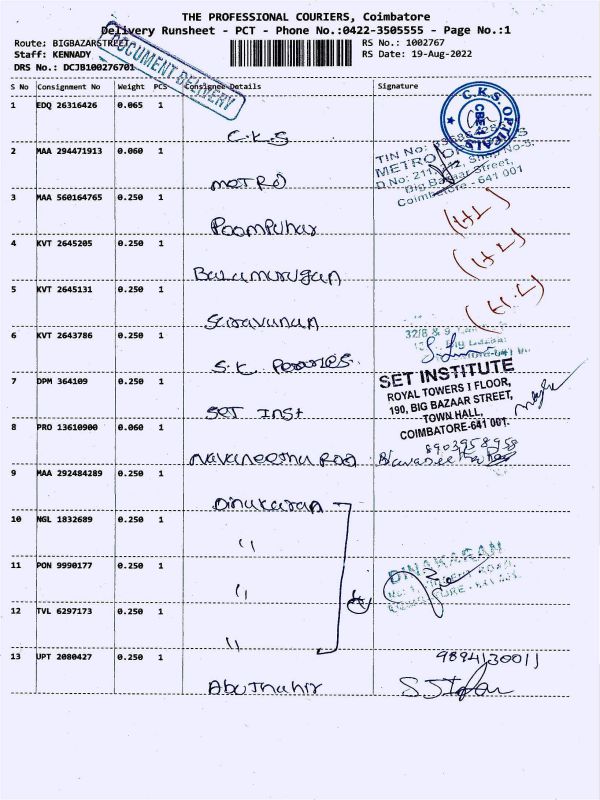 THE PROFESSIONAL COURIERS, Coimbatore
Delivery Runsheet - PCT - Phone No.:0422-3505555 - Page No.:1
Route: BIGBAZARSTREET
RS No.: 1002767
Staff: KENNADY
RS Date: 19-Aug-2022
DRS No.: DCJB100276701
DOCUMENT DELIVERY
S No Consignment No Weight PCS Consignee Details Signature
1 EDQ 26316426 0.065 1
C.K.S
C.K.S. OPTICALS
CBE
2 MAA 294471913 0.060 1
METRO
TIN No:
METRO
D.No: 211, Shop No-3,
Big Bazaar Street,
Coimbatore - 641 001
3 MAA 560164765 0.250 1
Poompuhar
4 KVT 2645205 0.250 1
Balamurugan
5 KVT 2645131 0.250 1
Saravanan
6 KVT 2643786 0.250 1
S.K
7 DPM 364109 0.250 1
SET Inst
SET INSTITUTE
ROYAL TOWERS I FLOOR,
190, BIG BAZAAR STREET,
TOWN HALL,
COIMBATORE-641 001.
8 PRO 13610900 0.060 1
8903958958
9 MAA 292484289 0.250 1
Dinakaran
10 NGL 1832689 0.250 1
"
11 PON 9990177 0.250 1
"
DINAKARAN
12 TVL 6297173 0.250 1
"
13 UPT 2080427 0.250 1
Abuthahir
9894130011